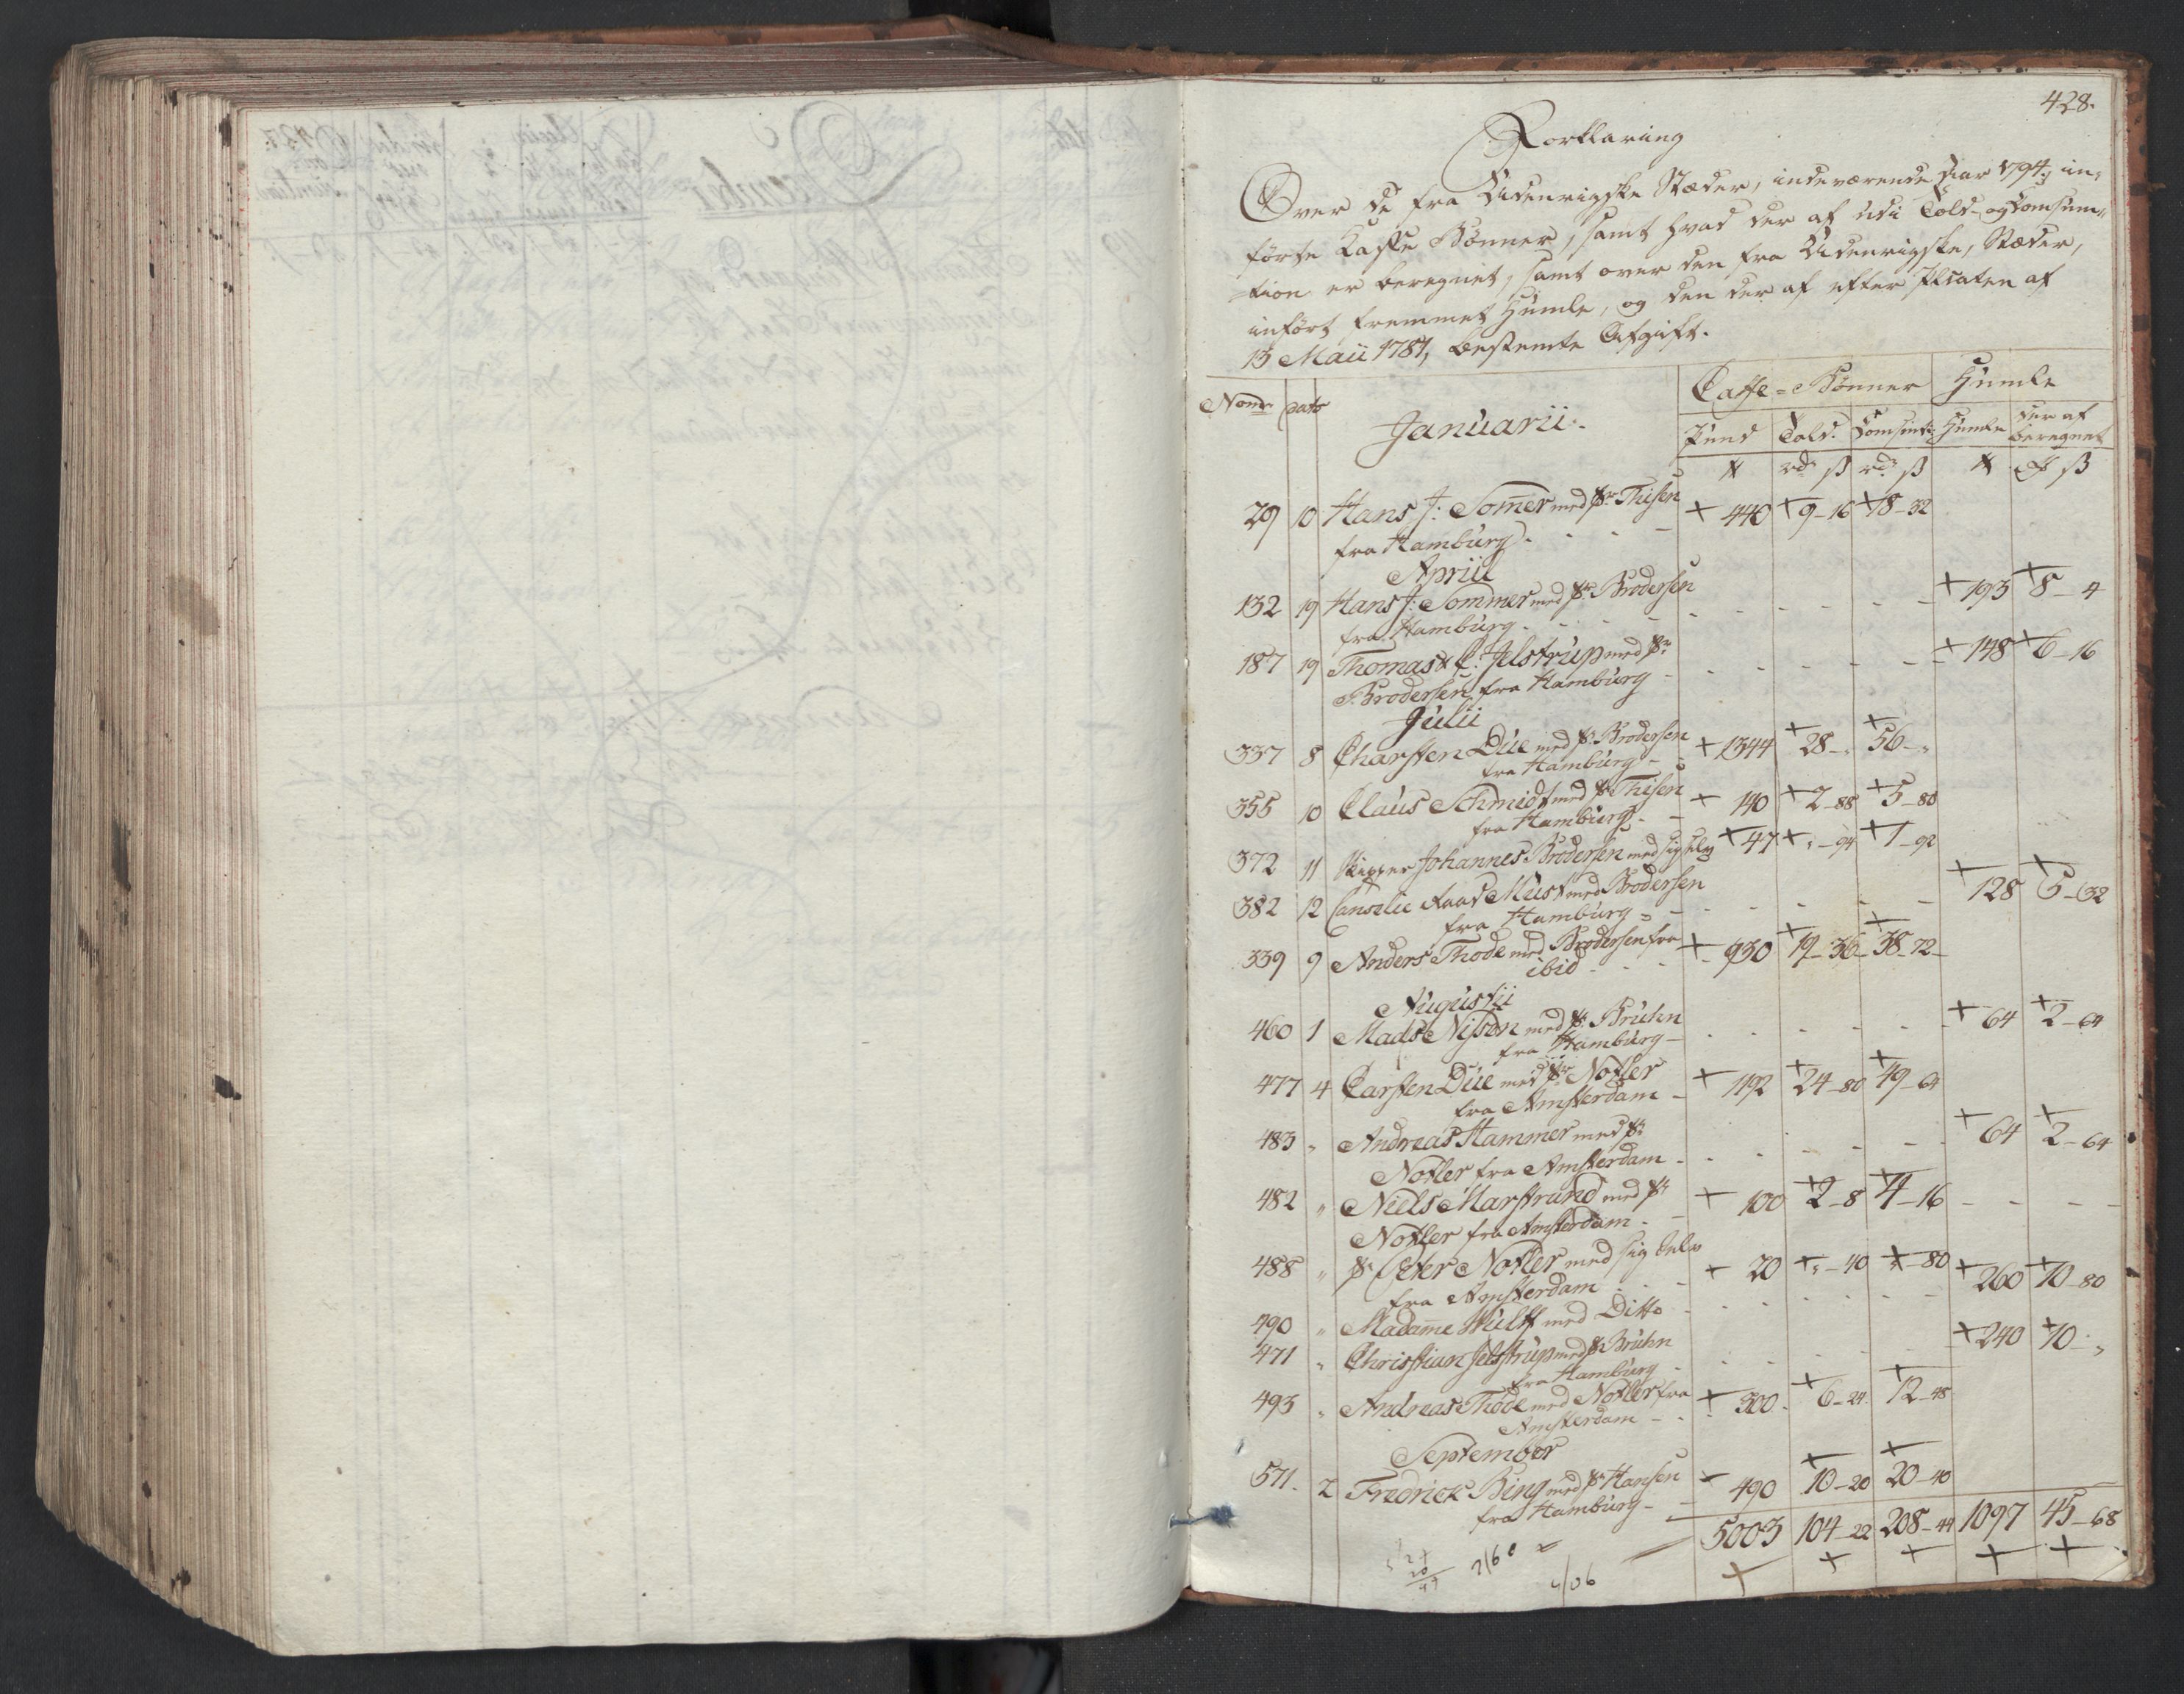 428.
Forklaring
Over de fra Udenrigske Stæder, indeværende Aar 1794, in-
førte Kaffe Bønner, samt hvad der af udi Told- og Consum-
tion er beregnet, samt over den fra Udenrigske, Stæder,
infört fremmet Humle, og den der af efter Placaten af
13 Maii 1787, bestemte Afgift.
Caffe-Bønner Humle
No dato Januarii. Pund Told. Consumt: Humle der af beregnet
℔ rdr ß rdr ß ℔ ß
29 10 Hans J: Somer med Skr Thisen + 440 + 9-16 + 18-32
fra Hamburg
Apriil
132 19 Hans J: Sommer med Skr Brodersen + 193 + 8-4
fra Hamburg
187 19 Thomas C. Jelstrup med Skr + 148 + 6-16
Brodersen fra Hamburg
Julii
337 8 Charsten Düe med Skr Brodersen + 1344 + 28-" + 56-"
fra Hamburg
355 10 Claus Schmidt med Skr Thisen + 140 + 2-88 + 5-80
fra Hamburg
372 11 Skipper Johannes Brodersen med sig selv + 47 + "-94 + 1-92
382 12 Cancelie Raad Must med Brodersen + 128 + 5-32
fra Hamburg
339 9 Anders Thode med Brodersen fra + 930 + 19-36 + 38-72
ibid
Augustii
460 1 Mads Nisson med Skr Bruhn + 64 + 2-64
fra Hamburg
477 4 Carsten Düe med Skr Notler + 1192 + 24-80 + 49-64
fra Amsterdam
483 " Andreas Hammer med Skr + 64 + 2-64
Notler fra Amsterdam
482 " Niels Marstrand med Skr + 100 + 2-8 + 4-16
Notler fra Amsterdam
488 " Skr Peter Notler med sig selv + 20 + "-40 + "-80 + 260 + 10-80
fra Amsterdam
490 " Madame Wulff med Ditto
471 " Christian Jelstrup med Skr Bruhn + 240 + 10-"
fra Hamburg
493 " Andreas Thode med Notler fra + 300 + 6-24 + 12-48
Amsterdam
September
571. 2 Fredrick Bing med Skr Hansen + 490 + 10-20 + 20-40
fra Hamburg
5003 104-22 208-44 1097 45-68
+ + + + +